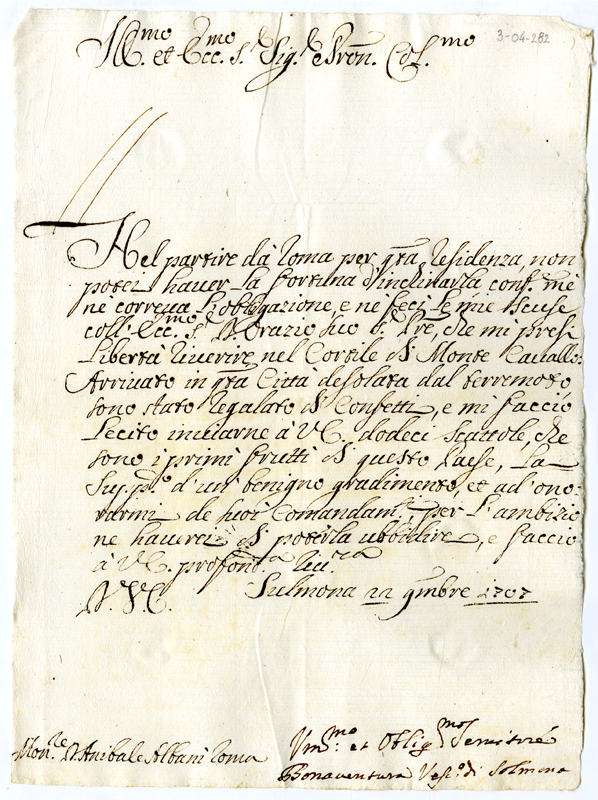 3-04-282
Ill.mo et Ecc. S.r Sig.r Pron. Col.mo
Nel partire da Roma per qta Residenza, non
potei haver la fortuna d'inclinarla conf.e me
ne correva l'obligazione, e ne feci le mie scuse
coll'Ecc.mo S.r D. Orazio suo S.r Pre, che mi presi
libertà riverire nel Cortile di Monte Cavallo.
Arrivato in qta Città desolata dal terremoto
sono stato regalato di Confetti, e mi faccio
lecito inviarne à V.E. dodeci scattole, che
sono i primi frutti di questo Paese, La
supp.co d'un benigno gradimento, et ad'ono-
rarmi de suoi Comandam.ti per l'ambizio
ne haverei di poterla ubbidire, e faccio
à V.E. profond.a riv.za
D. V. E. Sulmona 22 9mbre 1707
Mon.re D. Anibale Albani Roma
Um.mo et Oblig.mo Servitore
Bonaventura Vesc.o di Solmona